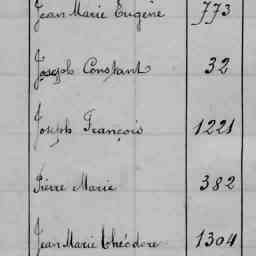 Jean Marie Eugène 773
Joseph Constant 32
Joseph François 1221
Pierre Marie 382
Jean Marie Théodore 1304